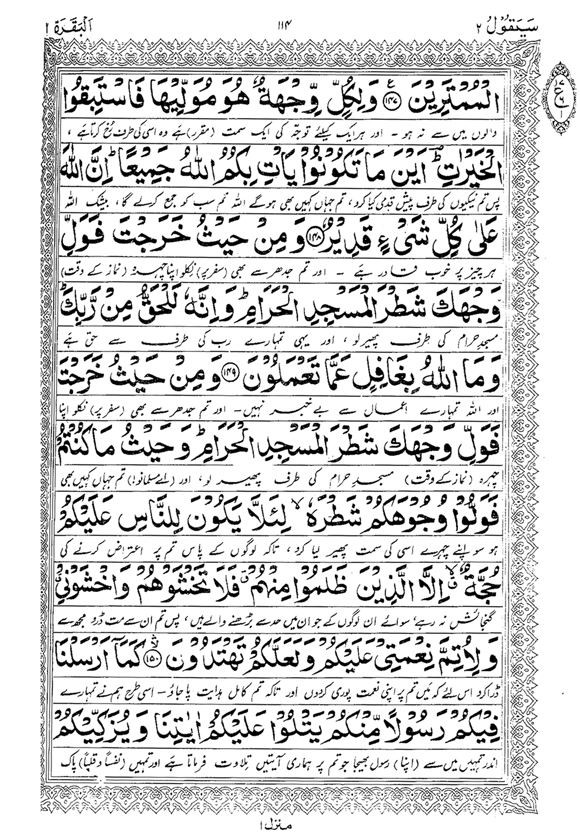 سَيَقُوْلُ ٢ ١١٤ اَلْبَقَرَة ٢
الْمُمْتَرِيْنَ ﴿۱۴۷﴾ وَلِكُلٍّ وِّجْهَةٌ هُوَ مُوَلِّيْهَا فَاسْتَبِقُوا
والوں میں سے نہ ہو ۔ اور ہر ایک کیلئے توجہ کی ایک سمت (مقرر) ہے وہ اسی کی طرف رُخ کرتا ہے ،
الْخَيْرٰتِ ؕ اَيْنَ مَا تَكُوْنُوْا يَاْتِ بِكُمُ اللّٰهُ جَمِيْعًا ؕ اِنَّ اللّٰهَ
پس تم نیکیوں کی طرف پیش قدمی کیا کرو ، تم جہاں کہیں بھی ہوگے اللہ تم سب کو جمع کرلے گا ، بیشک اللہ
عَلٰى كُلِّ شَىْءٍ قَدِيْرٌ ﴿۱۴۸﴾ وَمِنْ حَيْثُ خَرَجْتَ فَوَلِّ
ہر چیز پر خوب قادر ہے ۔ اور تم جدھر سے بھی (سفر پر) نکلو اپنا چہرہ (نماز کے وقت)
وَجْهَكَ شَطْرَ الْمَسْجِدِ الْحَرَامِ ؕ وَاِنَّهٗ لَلْحَقُّ مِنْ رَّبِّكَ ؕ
مسجدِ حرام کی طرف پھیر لو ، اور یہی تمہارے رب کی طرف سے حق ہے
وَمَا اللّٰهُ بِغَافِلٍ عَمَّا تَعْمَلُوْنَ ﴿۱۴۹﴾ وَمِنْ حَيْثُ خَرَجْتَ
اور اللہ تمہارے اعمال سے بے خبر نہیں ۔ اور تم جدھر سے بھی (سفر پر) نکلو اپنا
فَوَلِّ وَجْهَكَ شَطْرَ الْمَسْجِدِ الْحَرَامِ ؕ وَحَيْثُ مَا كُنْتُمْ
چہرہ (نماز کے وقت) مسجدِ حرام کی طرف پھیر لو ، اور (اے مسلمانو!) تم جہاں کہیں بھی
فَوَلُّوْا وُجُوْهَكُمْ شَطْرَهٗ ۙ لِئَلَّا يَكُوْنَ لِلنَّاسِ عَلَيْكُمْ
ہو سو اپنے چہرے اسی کی سمت پھیر لیا کرو ، تاکہ لوگوں کے پاس تم پر اعتراض کرنے کی
حُجَّةٌ ۙ اِلَّا الَّذِيْنَ ظَلَمُوْا مِنْهُمْ ۙ فَلَا تَخْشَوْهُمْ وَاخْشَوْنِيْ ۙ
گنجائش نہ رہے سوائے ان لوگوں کے جو ان میں حد سے بڑھنے والے ہیں ، پس تم ان سے مت ڈرو مجھ سے
وَلِاُتِمَّ نِعْمَتِيْ عَلَيْكُمْ وَلَعَلَّكُمْ تَهْتَدُوْنَ ﴿۱۵۰﴾ كَمَاۤ اَرْسَلْنَا
ڈرا کرو اس لئے کہ میں تم پر اپنی نعمت پوری کردوں اور تاکہ تم کامل ہدایت پا جاؤ ۔ اسی طرح ہم نے تمہارے
فِيْكُمْ رَسُوْلًا مِّنْكُمْ يَتْلُوْا عَلَيْكُمْ اٰيٰتِنَا وَيُزَكِّيْكُمْ
اندر تمہیں میں سے (اپنا) رسول بھیجا جو تم پر ہماری آیتیں تلاوت فرماتا ہے اور تمہیں (نفساً و قلباً) پاک
منزل ١